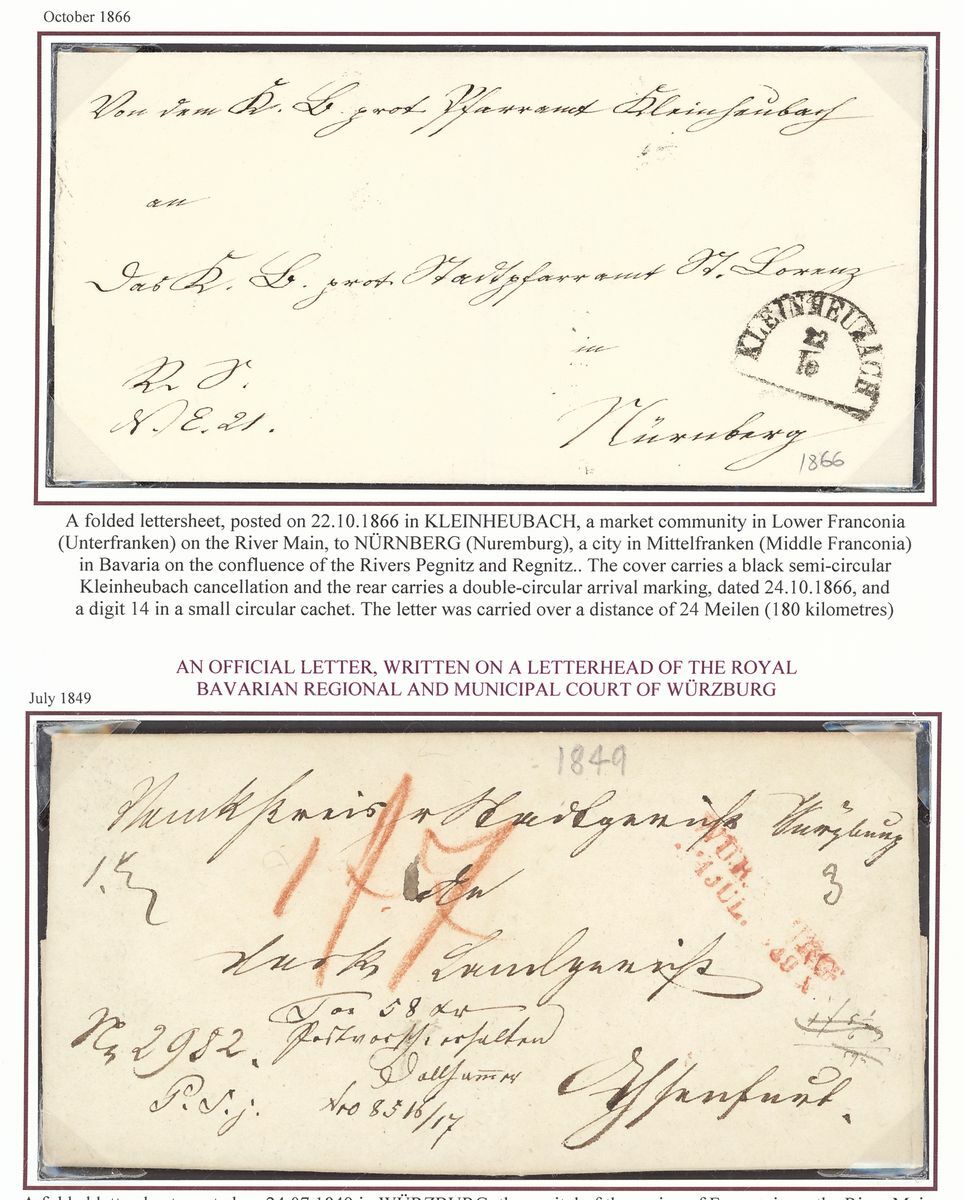 October 1866
Von dem K. B. prot. Pfarramt Kleinheubach
an
Das K. B. prot. Stadtpfarramt St. Lorenz
KLEINHEUBACH
22
10
in
R. S.
N. E. 21.
Nürnberg
1866
A folded lettersheet, posted on 22.10.1866 in KLEINHEUBACH, a market community in Lower Franconia
(Unterfranken) on the River Main, to NÜRNBERG (Nuremburg), a city in Mittelfranken (Middle Franconia)
in Bavaria on the confluence of the Rivers Pegnitz and Regnitz.. The cover carries a black semi-circular
Kleinheubach cancellation and the rear carries a double-circular arrival marking, dated 24.10.1866, and
a digit 14 in a small circular cachet. The letter was carried over a distance of 24 Meilen (180 kilometres)
AN OFFICIAL LETTER, WRITTEN ON A LETTERHEAD OF THE ROYAL
BAVARIAN REGIONAL AND MUNICIPAL COURT OF WÜRZBURG
July 1849
1849
Stadtgericht Würzburg
3
JUL.
Landgericht
58 kr
No 2982.
Postvorsch. erhalten
Ochsenfurt.
P. S. j.
Nro 85 16/17